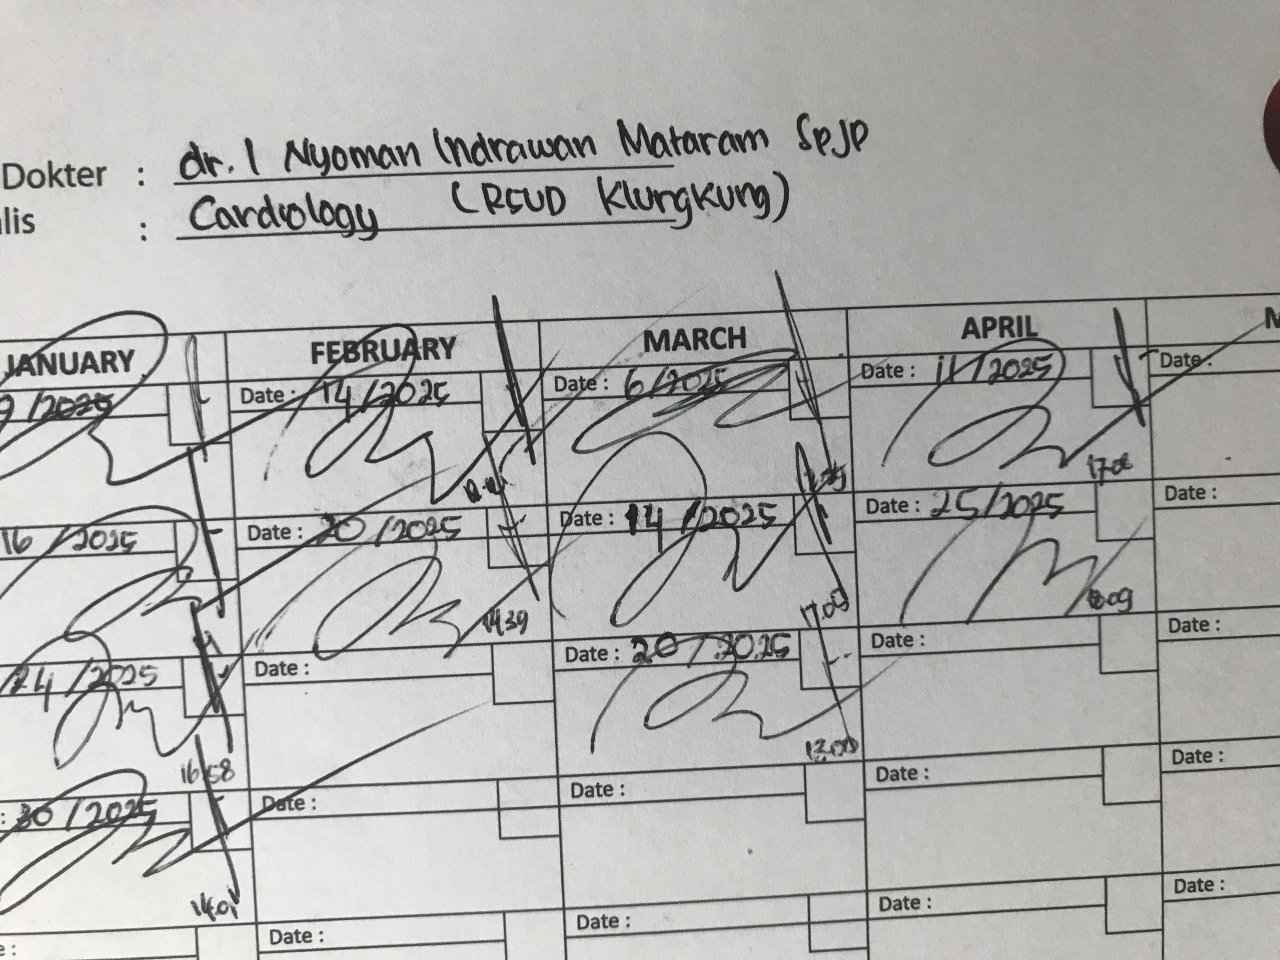 Dokter : dr. I Nyoman Indrawan Mataram SpJP
lis : Cardiology (RSUD Klungkung)
JANUARY FEBRUARY MARCH APRIL M
9/2025 Date : 14/2025 Date : 6/2025 Date : 11/2025 Date
17.06
16/2025 Date : 20/2025 Date : 14/2025 Date : 25/2025 Date :
14.39 17.09 09
24/2025 Date : Date : 20/2025 Date : Date :
16.58 13.00
: 30/2025 Date : Date : Date : Date :
14.01
e : Date : Date : Date : Date :